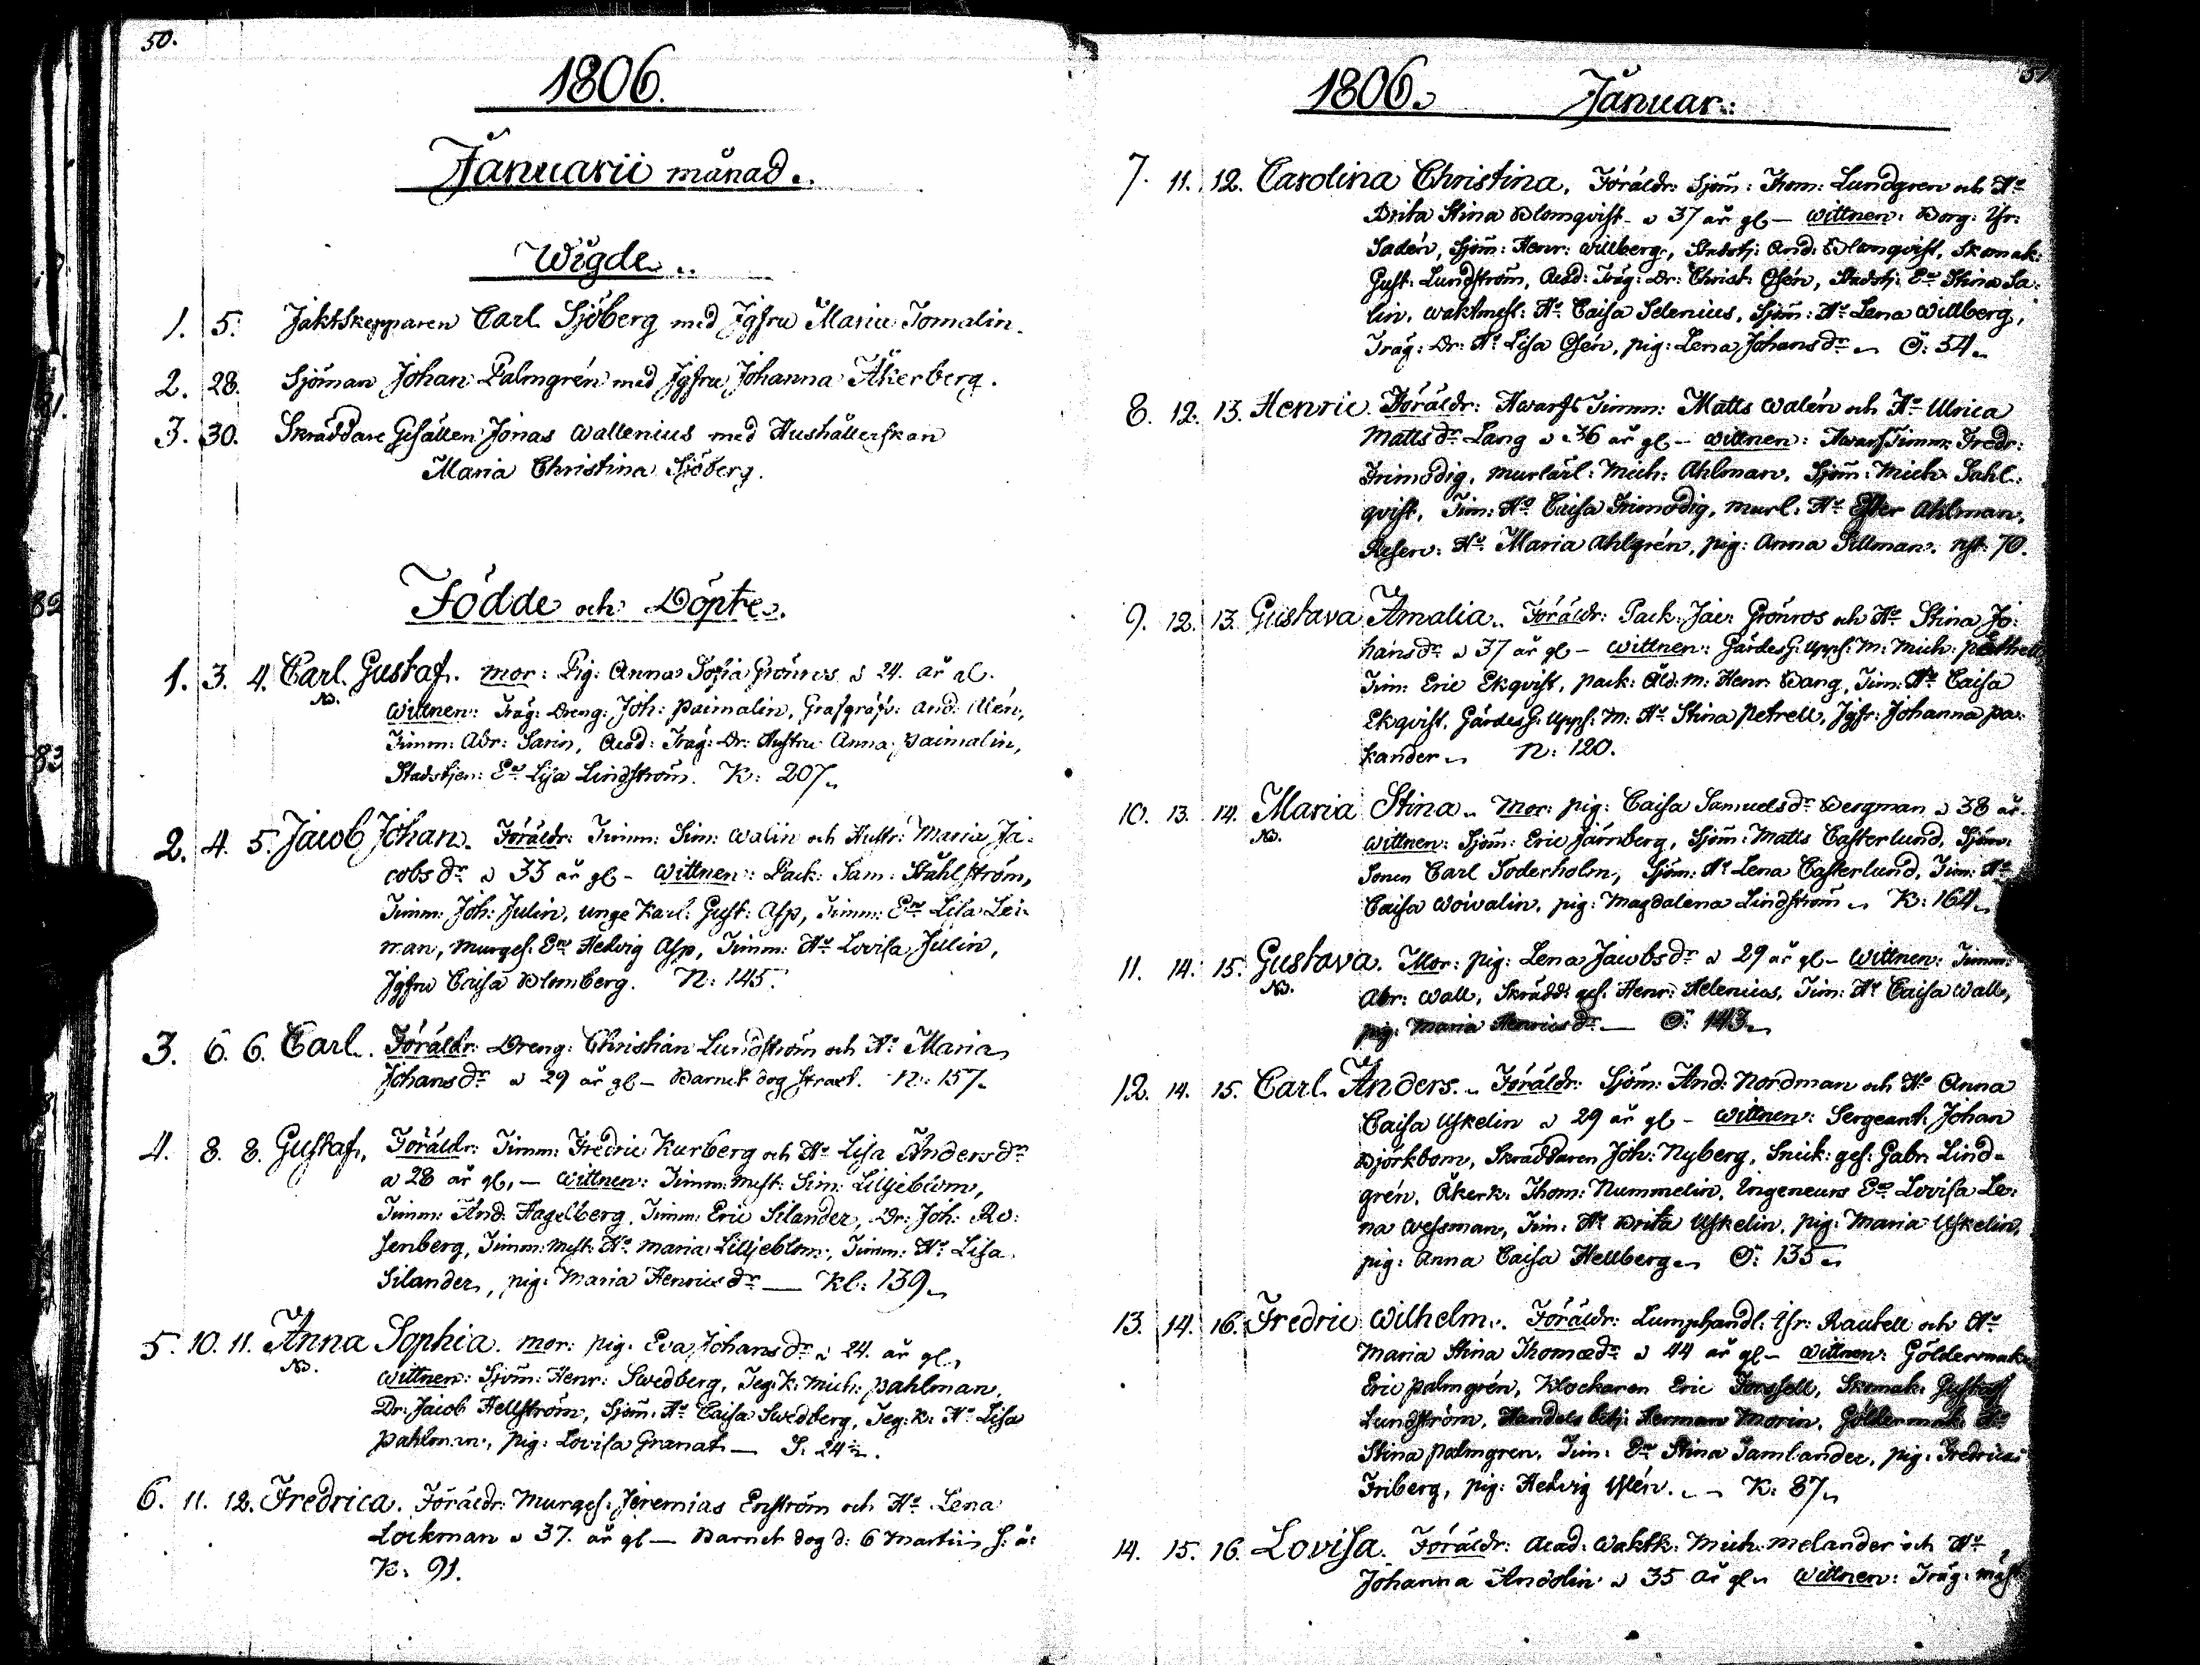 50.
1806.
Januarii månad.
Wigde.
1. 5. Jaktskepparen Carl Sjöberg med Jgfru Maria Tomalin.
2. 28. Sjöman Johan Palmgrén med Jgfru Johanna Åkerberg.
3. 30. Skräddare Gesällen Jonas Wallenius med Hushållerskan
Maria Christina Sjöberg.
Födde och Döpte.
1. 3. 4. Carl Gustaf. mor: Pig: Anna Sofia Grönros a 24. år gl.
NB.
Wittnen: Träg: Dreng: Joh: Paimalin, Grafgräfv: And: Alén,
Timm: Abr: Sarin, Acad: Träg: Dr: Hustru Anna Paimalin,
Stadstjen: Ea Lisa Lindström. K: 207.
2. 4. 5. Jacob Johan. Föräldr: Timm: Sim: Walin och Hustr: Maria Ja-
cobs dr a 33 år gl - Wittnen: Pack: Sam: Ståhlström,
Timm: Joh: Julin, unge Karl: Gust: Asp, Timm: Ea Lisa Lei-
man, Murges: Ea Hedvig Asp, Timm: Hu Lovisa Julin,
Jgfru Caisa Blomberg. N: 145.
3. 6. 6. Carl. Föräldr: Dreng: Christian Lundström och Hu Maria
Johans dr a 29 år gl - Barnet dog straxt. N: 157.
4. 8. 8. Gustaf, Föräldr: Timm: Fredric Kurberg och Hu Lisa Anders dr
a 28 år gl, - Wittnen: Timm: mest: Sim: Liljeblom,
Timm: And: Hagelberg, Timm: Eric Silander, Dr: Joh: Ro-
senberg, Timm: mest: Hu Maria Liljeblom, Timm: Hu Lisa
Silander, pig: Maria Henrics dr — Kl: 139.
5. 10. 11. Anna Sophia. mor: pig: Eva Johans dr a 24. år gl,
NB.
Wittnen: Sjöm: Henr: Swedberg, Teg: K: Mich: Pahlman,
Dr: Jacob Hellström, Sjöm: Hu Caisa Swedberg, Teg: K: Hu Lisa
Pahlman, pig: Lovisa Granat — S. 24½.
6. 11. 12. Fredrica. Föräldr: Murges: Jeremias Enström och Hu Lena
Lockman a 37. år gl — Barnet dog d: 6 Martii s: å:
K: 91.
51.
1806. Januar:
7. 11. 12. Carolina Christina. Föräldr: Sjöm: Thom: Lundgren och Hu
Brita Stina Blomqvist a 37 år gl — Wittnen: Borg: Isr:
Sadén, Sjöm: Henr: Willberg, Stadstj: And: Blomqvist, Skomak:
Gust: Lundström, Acad: Träg: Dr: Christ: Osén, Stadstj: Ea Stina Sa-
lin, waktmest: Hu Caisa Selenius, Sjöm: Hu Lena Willberg,
Träg: Dr: Hu Lisa Osén, pig: Lena Johans dr Ö: 54.
8. 12. 13. Henric. Föräldr: Hwarfs Timm: Matts Walén och Hu Ulrica
Matts dr Lang a 36 år gl - Wittnen: Hwarfs Timm: Fredr:
Frimodig, murlärl: Mich: Ahlman, Sjöm: Mich: Sahl-
qvist, Tim: Hu Caisa Frimodig, murl: Hu Ester Ahlman,
Reserv: Hu Maria Ahlgrén, pig: Anna Tillman. nst: 70.
9. 12. 13. Gustava Amalia. Föräldr: Pack: Jac: Grönros och Hu Stina Jo-
hans dr a 37 år gl - Wittnen: Gärdes G: Upps: M: Mich: Pettrell
Tim: Eric Ekqvist, pack: Åld: m: Henr: Wang, Tim: Hu Caisa
Ekqvist, Gärdes G: Upps: M: Hu Stina Petrell, Jgfr: Johanna Pa-
kander N: 120.
10. 13. 14. Maria Stina. Mor: pig: Caisa Samuels dr Bergman a 38 år.
NB.
Wittnen: Sjöm: Eric Järnberg, Sjöm: Matts Casterlund, Sjöm:
Sonen Carl Söderholm, Sjöm: Hu Lena Casterlund, Tim: Hu
Caisa Woivalin, pig: Magdalena Lindström K: 164.
11. 14. 15. Gustava. Mor: pig: Lena Jacobs dr a 29 år gl - Wittnen: Timm:
NB.
Abr: Wall, Skrädd: ges: Henr: Helenius, Tim: Hu Caisa Wall,
pig: Maria Henrics dr — Ö: 143.
12. 14. 15. Carl Anders. Föräldr: Sjöm: And: Nordman och Hu Anna
Caisa Uskelin a 29 år gl - Wittnen: Sergeant: Johan
Björkbom, Skräddaren Joh: Nyberg, Snick: ges: Gabr: Lind-
grén, Åkerk: Thom: Nummelin, Ingeneurs Ea Lovisa Le-
na Wessman, Tim: Hu Brita Uskelin, pig: Maria Uskelin,
pig: Anna Caisa Hellberg Ö: 135
13. 14. 16. Fredric Wilhelm. Föräldr: Lumphandl: Isr: Rautell och Hu
Maria Stina Thomæ dr a 44 år gl - Wittnen: Göldermak:
Eric Palmgrén, Klockaren Eric Forssell, Skomak: Gustaf
Lundström, Handels betj: Herman Morin, Göldermak: Hu
Stina Palmgren, Tim: Ea Stina Tamlander, pig: Fredrica
Friberg, pig: Hedvig K: 87
14. 15. 16. Lovisa. Föräldr: Acad: Waktk: Mich: Melander och Hu
Johanna Andolin a 35 år gl Wittnen: Träg: mäst